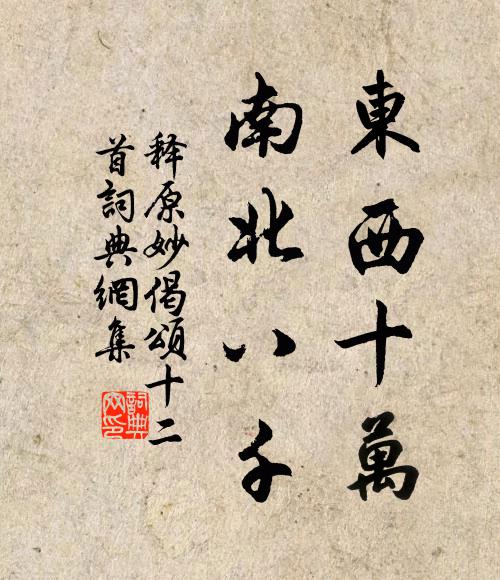 東西十萬
南北八千
释原妙偈頌十二
首詞典網集
詞典
网印